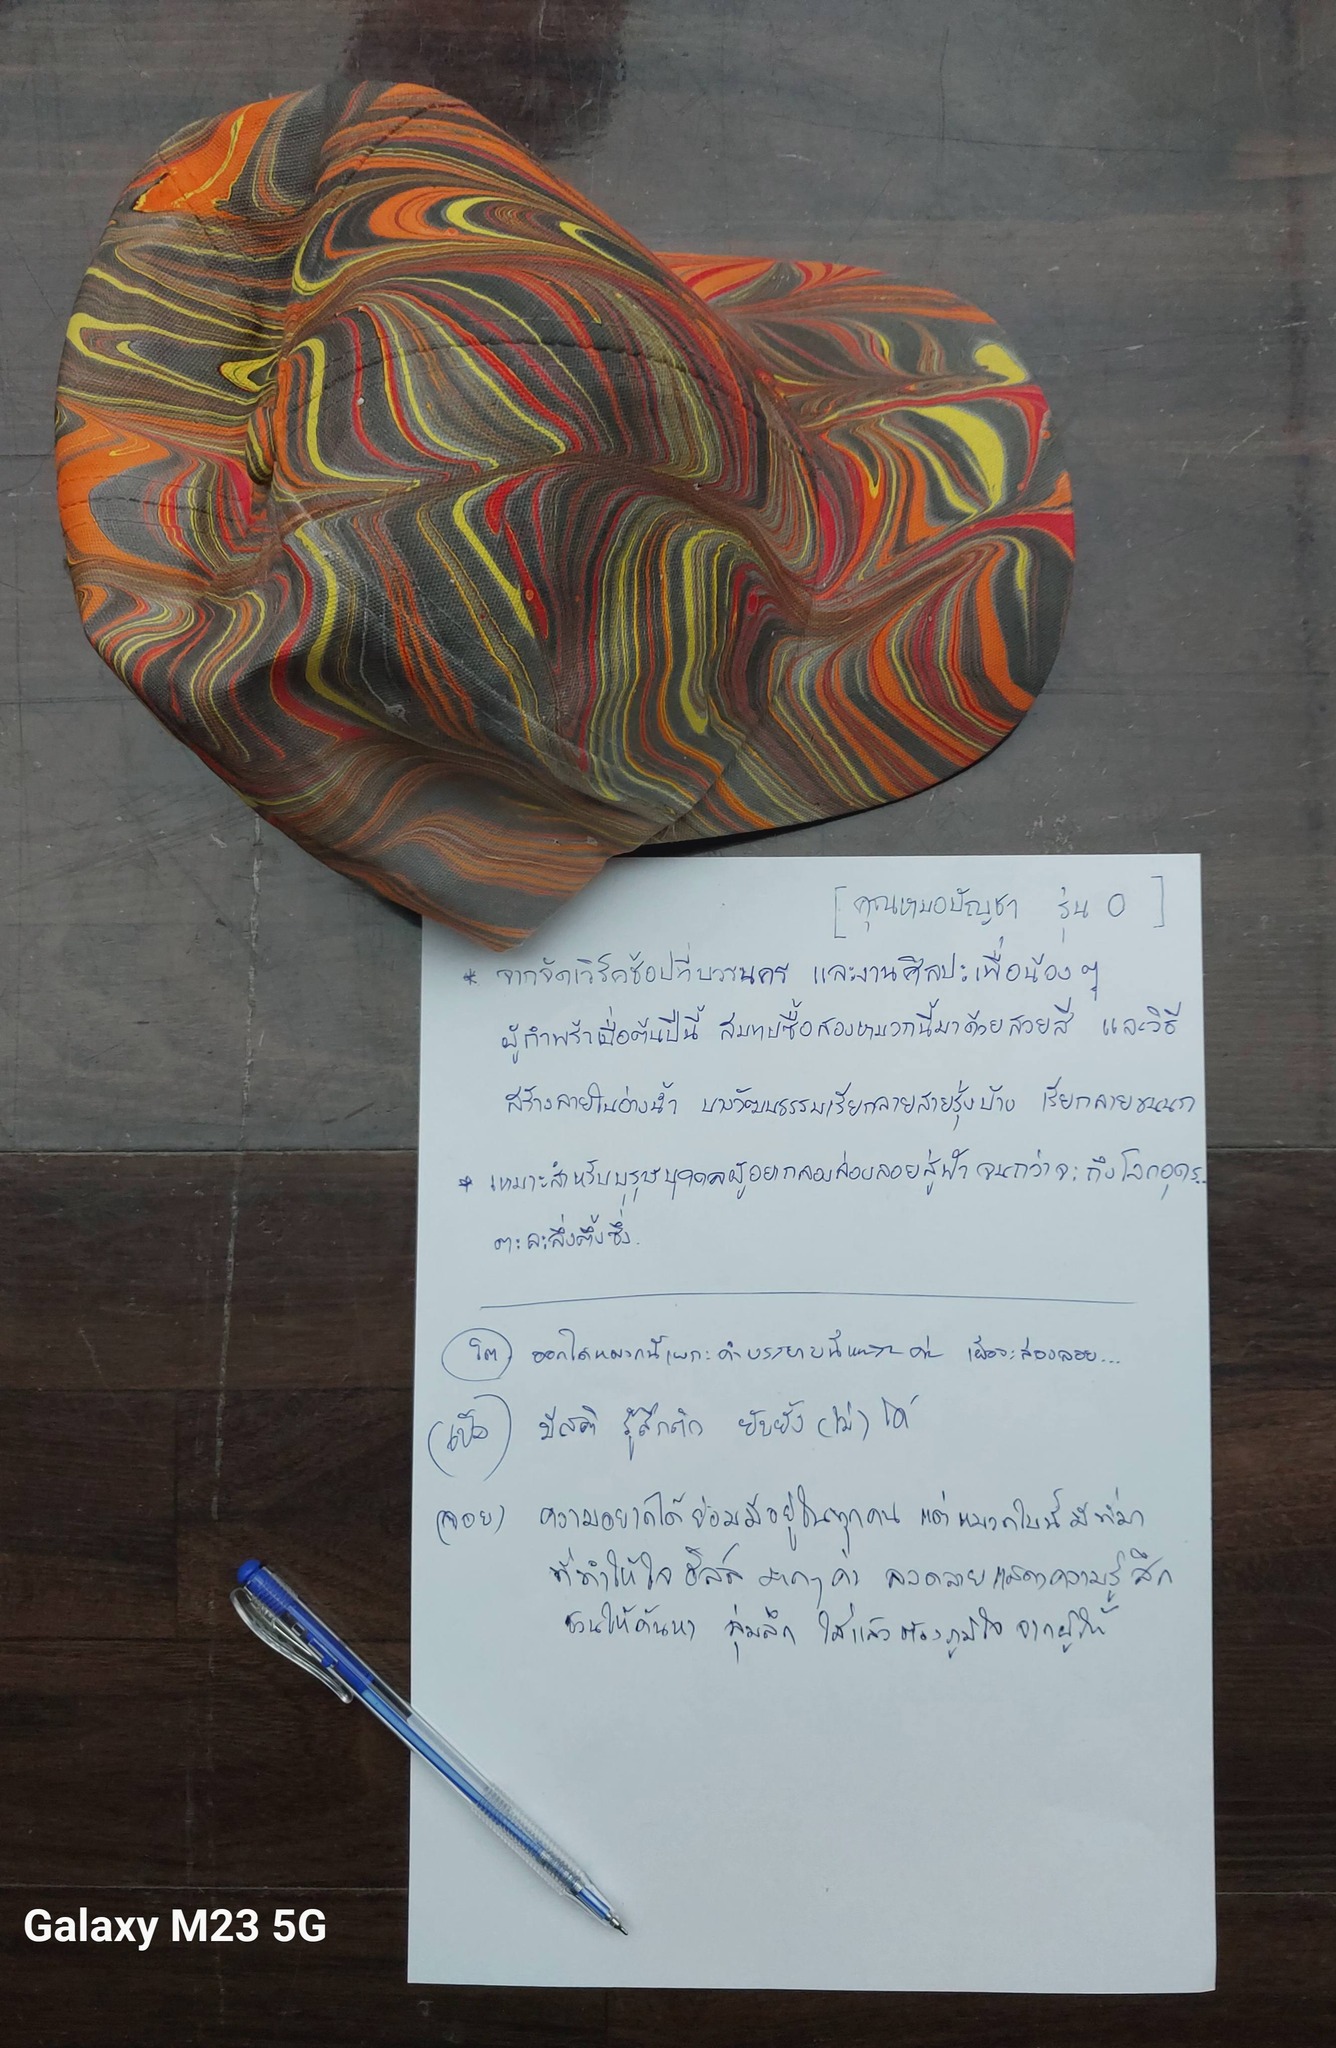 [คุณหมอบัญชา รุ่น 0]
* จากจัดเวิร์คช้อปที่บวรนคร และงานศิลปะเพื่อน้อง ๆ
ผู้กำพร้าเมื่อต้นปีนี้ สมทบซื้อสองหมวกนี้มาด้วยสวยสี และวิธี
สร้างลายในอ่างน้ำ บางวัฒนธรรมเรียกลายสายรุ้งบ้าง เรียกลายขนนก
* เหมาะสำหรับบุรุษบุคคลผู้อยากล่องลอยสู่ฟ้า จนกว่าจะถึงโลกอุดร..
ตะละลึ่งตึ้งซึ่ง.
ออกใดหมวกนี้เพราะคำบรรยายนี้ ค่ะ เผื่อจะล่องลอย...
มีสติ รู้สึกตัว ยับยั้ง (ไม่) ได้
(จอย) ความอยากได้ ย่อมมีอยู่ในทุกคน แต่หมวกใบนี้ มีที่มา
ที่ทำให้ใจ ฮีลล์ มากๆ ค่ะ ลวดลายแสดงความรู้สึก
ชวนให้ค้นหา ลุ่มลึก ใส่แล้วต้องภูมิใจ จากผู้ให้
Galaxy M23 5G